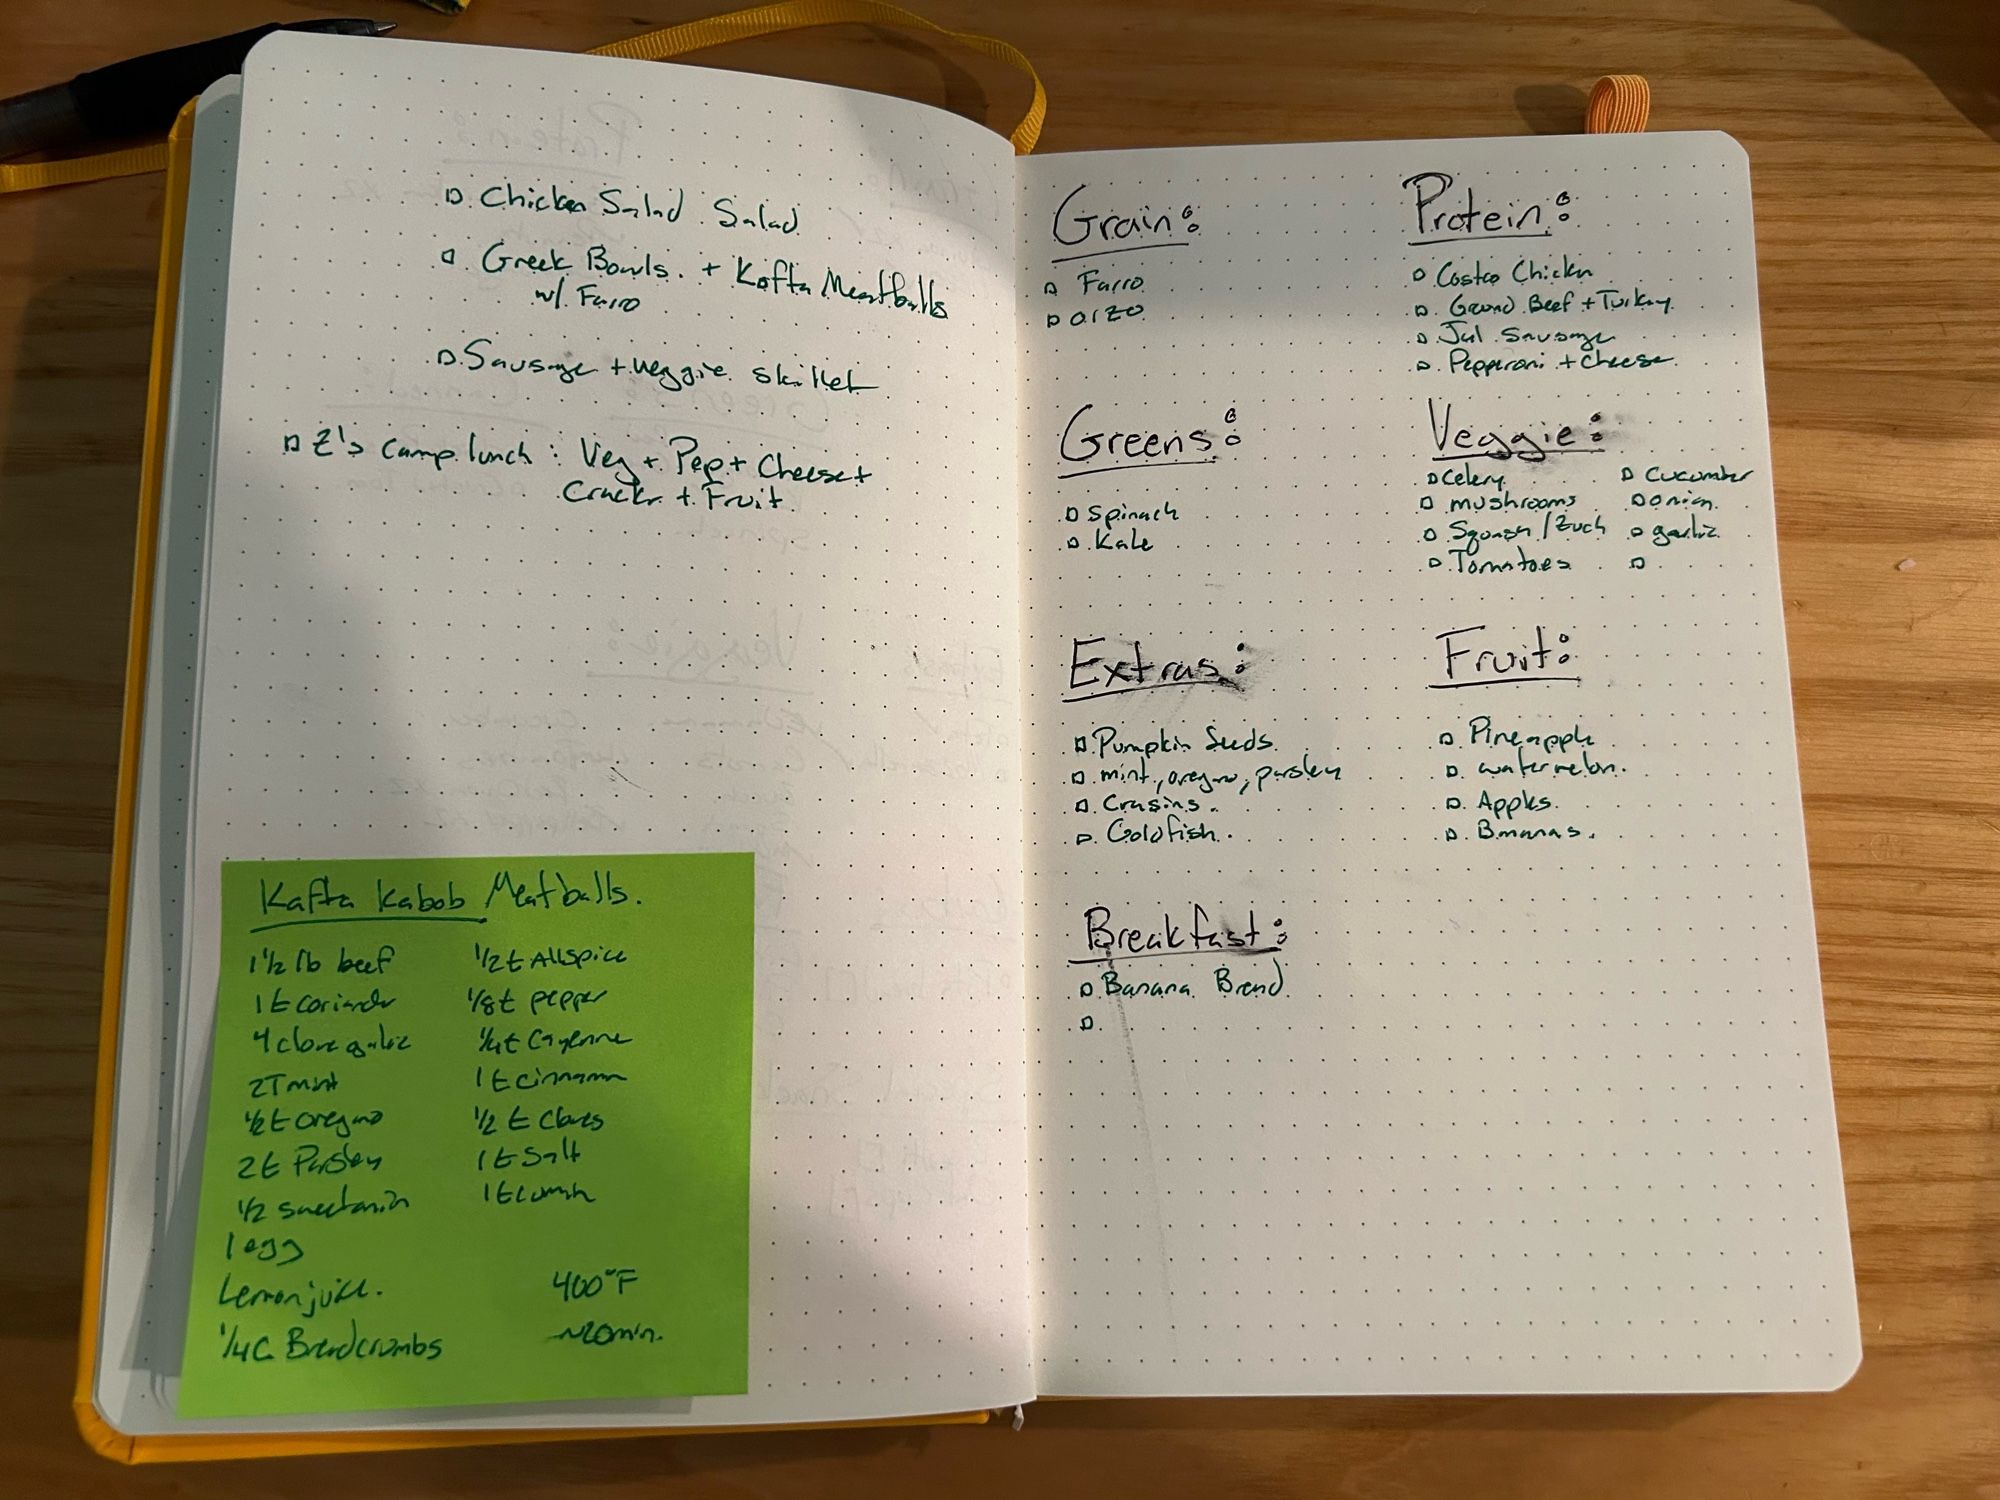 Chicken Salad Salad
Greek Bowls + Kofta Meatballs
w/ Farro
Sausage + veggie skillet
Z's camp lunch : Veg + Pep + Cheese +
Crackr + Fruit
Kafta Kabob Meatballs.
1 1/2 lb beef
1 t coriander
4 clove garlic
2T mint
1/2 t oregano
2 t Parsley
1/2 sweet onion
1 egg
Lemon juice.
1/4 C Breadcrumbs
1/2 t Allspice
1/8 t pepper
1/4 t Cayenne
1 t cinnamon
1/2 t Cloves
1 t Salt
1 t cumin
400°F
~20min.
Grain:
Farro
orzo
Protein:
Costco Chicken
Ground Beef + Turkey
Jal Sausage
Pepperoni + Cheese
Greens:
Spinach
Kale
Veggie:
Celery
mushrooms
Squash / Zuch
Tomatoes
Cucumber
onion
garlic
Extras:
Pumpkin Seeds
mint, oregano, parsley
Crasins
Goldfish
Fruit:
Pineapple
watermelon
Apples
Bananas
Breakfast:
Banana Bread